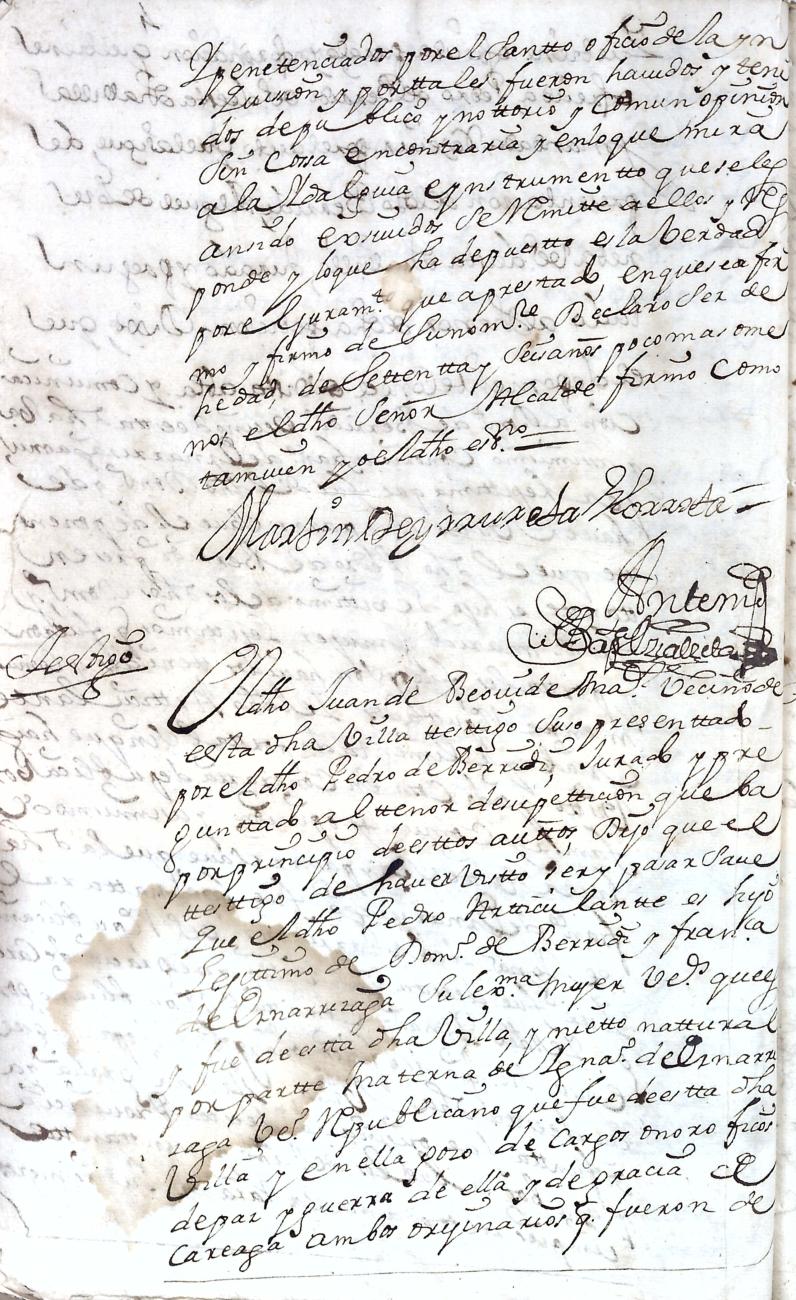 Y penetenciados por el Santto oficio de la yn
quizion y por ttales fueron havidos y teni
dos de publico y nottorio y Comun opinion
sin Cossa encontraria y enloque mira
a la Ydalguia e ynstrumentto que se le
ansido exsividos se Remitte a ellos y Res
ponde y loque ha depuestto es la Verdad
por el Juramto. que aprestado, en que se afir
mo y firmo de Su nomre. Declaro Ser de
hedad, de Settentta y Seis años poco mas ome
nos el dho Señor Alcalde firmo Como
tamvien yo el dho essno
Martin de yrrureta
Antemi
Testigo
El dho Juan de Beovide Vecino de
estta dha Villa ttesttigo Suso presenttado
por el dho Pedro de Berridi, Jurado y pre
gunttado al ttenor desupetticion que ba
por principio de esttos auttos, Dijo que el
ttesttigo de haver Vistto Ser y pasar Save
que el dho Pedro Artticulantte es hijo
Legittimo de Domo. de Berridi y franca
de Ernarrizaga Su lexma. Mujer Vos. que es
y fue de estta dha Villa, y nietto nattural
por partte Materna de Ygnao. de Ernarri
zaga Vo. Republicano que fue de estta dha
Villa y en ella gozo de Cargos onoroficos
de paz y guerra de ella y de gracia de
Careaga ambos oryinarios q. fueron de